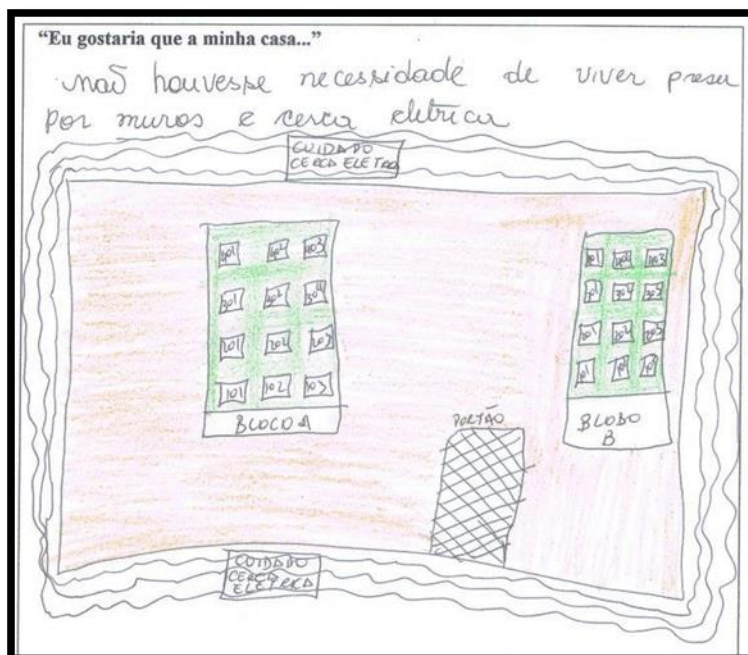 “Eu gostaria que a minha casa...”
não houvesse necessidade de viver preso
por muros e cerca eletrica
CUIDADO
CERCA ELETRA
401 402 403
301 302 304
201 202 203
101 102 103
BLOCO A
PORTÃO
402 403
304 303
201 202 203
101
BLOBO
B
CUIDADO
CERCA
ELETRCA